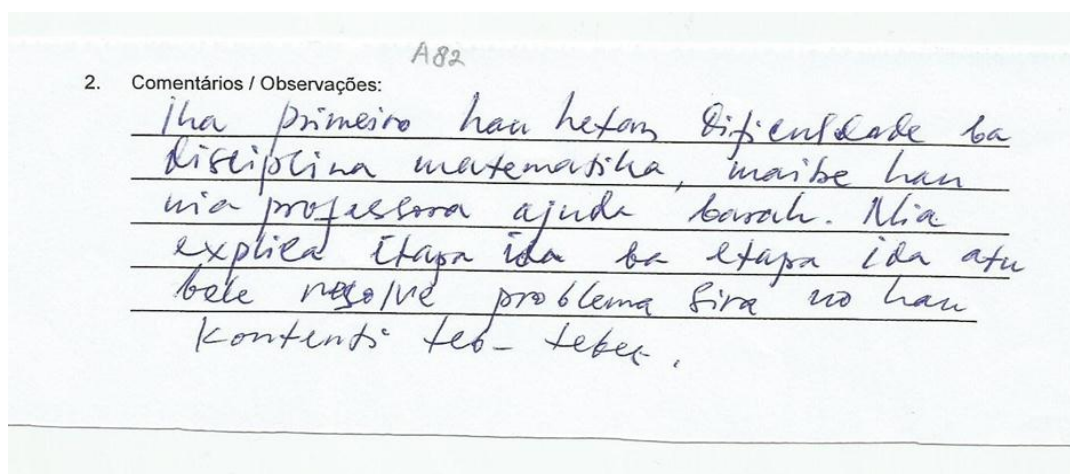 A82
2. Comentários / Observações:
Iha primeiro hau hetan dificuldade ba
disciplina matematika, maibe hau
nia professora ajuda barak. Nia
explica etapa ida ba etapa ida atu
bele resolve problema sira no hau
kontenti teb-tebes.